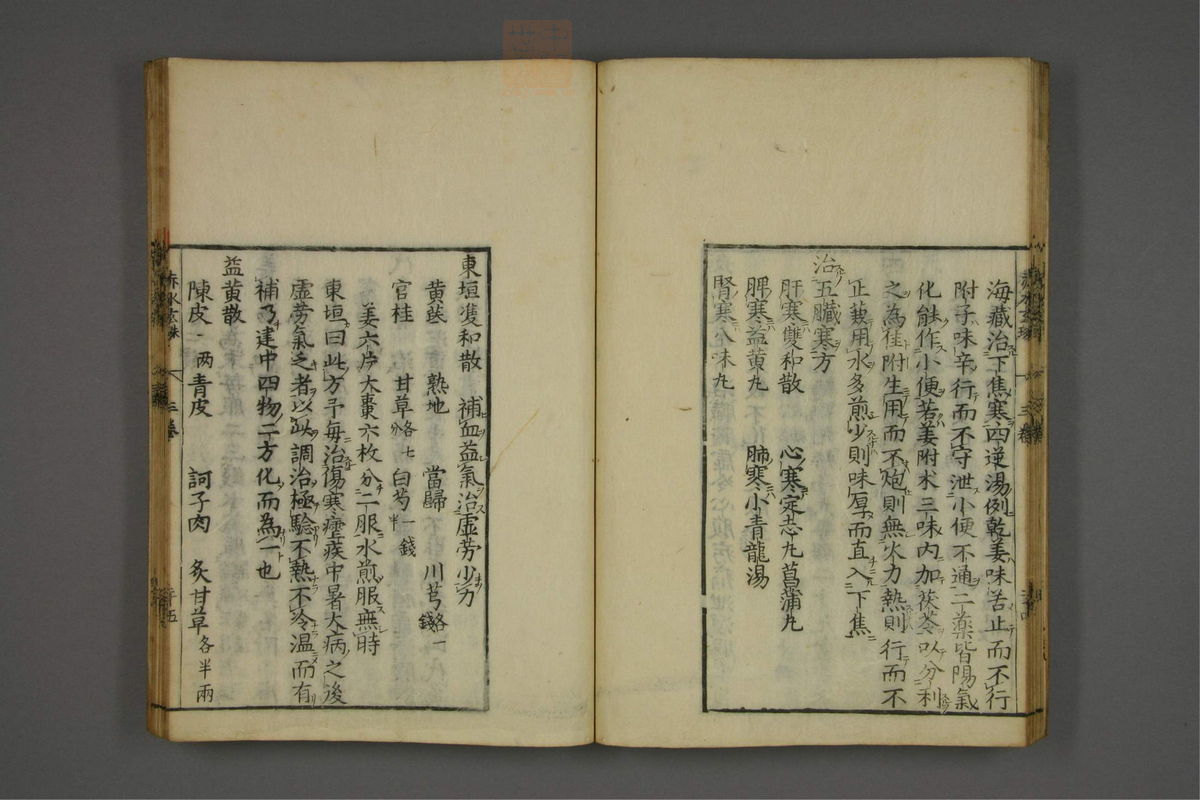 海藏治下焦寒四逆湯例乾姜味苦止而不行
附子味辛行而不守泄小便不通二藥皆陽氣
化能作小便若姜附术三味内加茯苓以分利
之為佳附生用而不炮則無火力熱則行而不
止薮用水多煎少則味厚而直入下焦
治五臟寒方
肝寒雙和散　心寒定志丸菖蒲丸
脾寒益黄丸　肺寒小青龍湯
腎寒八味丸
東垣雙和散　補血益氣治虚勞少力
黄芪　熟地　當歸　川芎各一錢
官桂　甘草各七分　白芍一錢半
姜六片大棗六枚分二服水煎服無時
東垣曰此方予毎治傷寒瘧疾中暑大病之後
虚勞氣乏者以此調治極驗不熱不冷温而有
補乃建中四物二方化而為一也
益黄散
陳皮一两　青皮　訶子肉　炙甘草各半兩
赤水玄珠　三卷